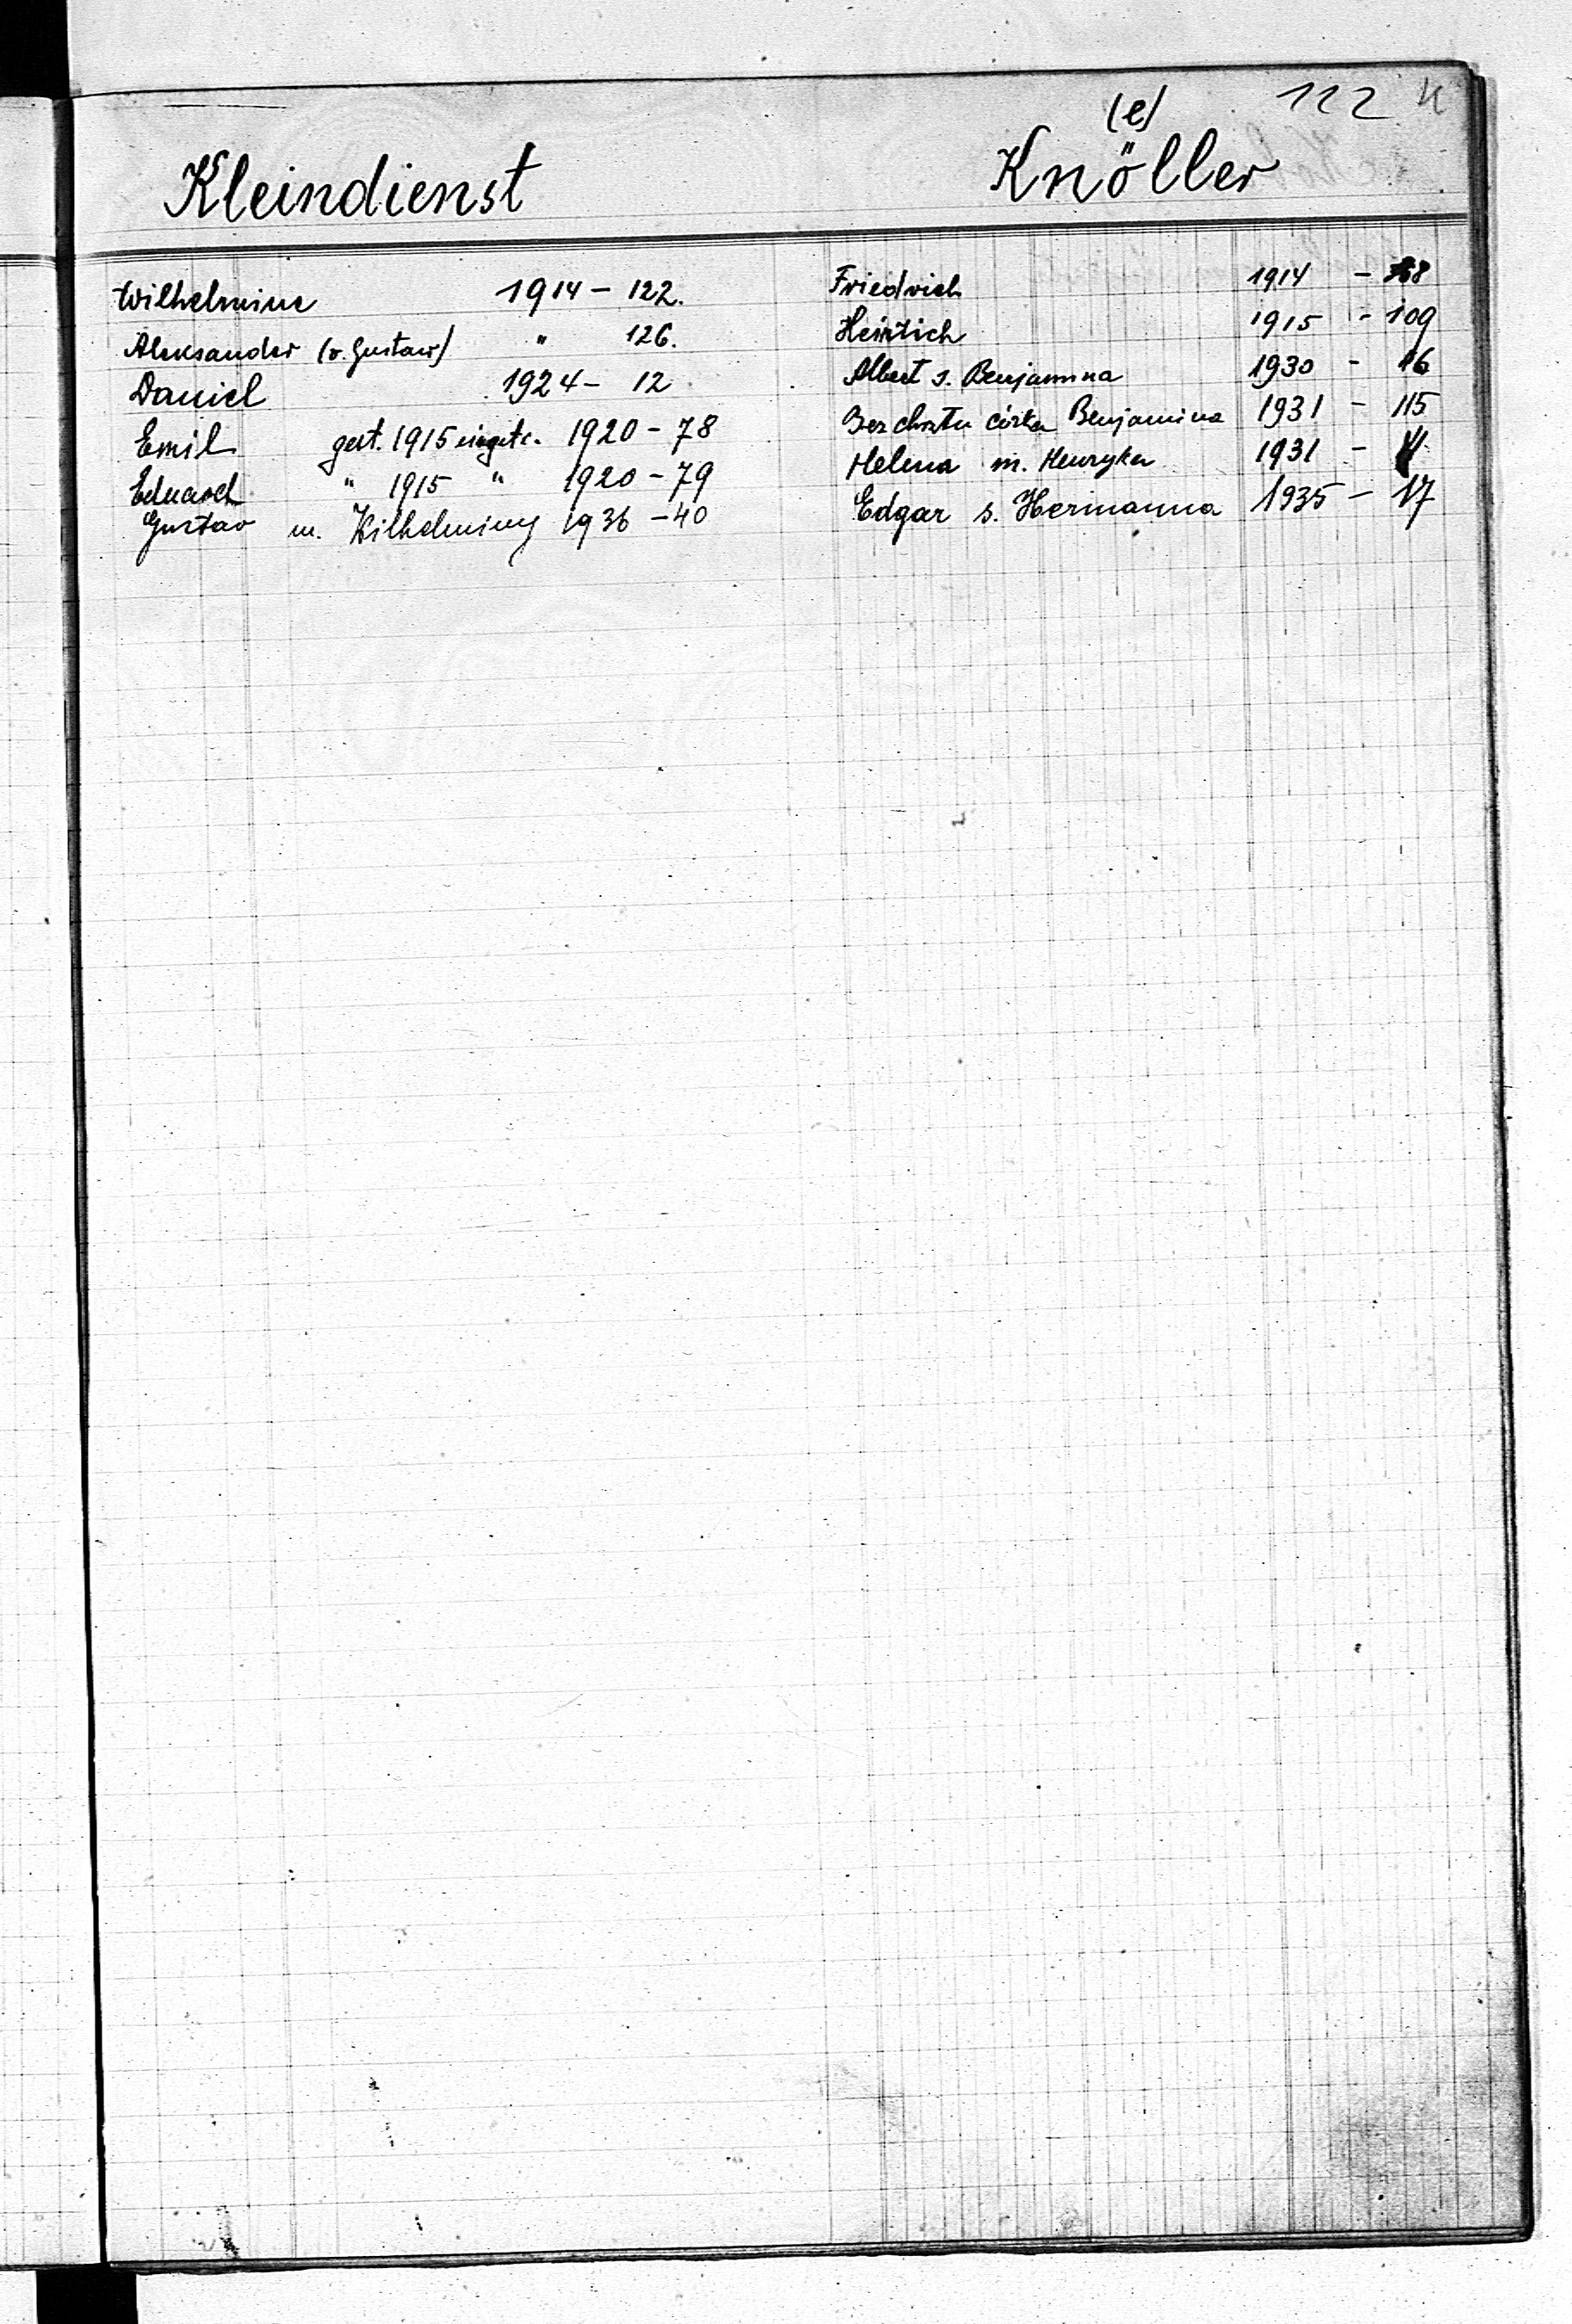 122 K
Kleindienst
Wilhelmine 1914 - 122.
Aleksander (v. Gustaw) " 126.
Daniel 1924 - 12
Emil gest. 1915 eingetr. 1920 - 78
Eduard " 1915 " 1920 - 79
Gustav m. Wilhelminy 1936 - 40
(e)
Knöller
Friedrich 1914 - 88
Heinrich 1915 - 109
Albert s. Benjamina 1930 - 16
Bez chrztu córka Benjamina 1931 - 115
Helena m. Henryka 1931 -
Edgar s. Hermanna 1935 - 17